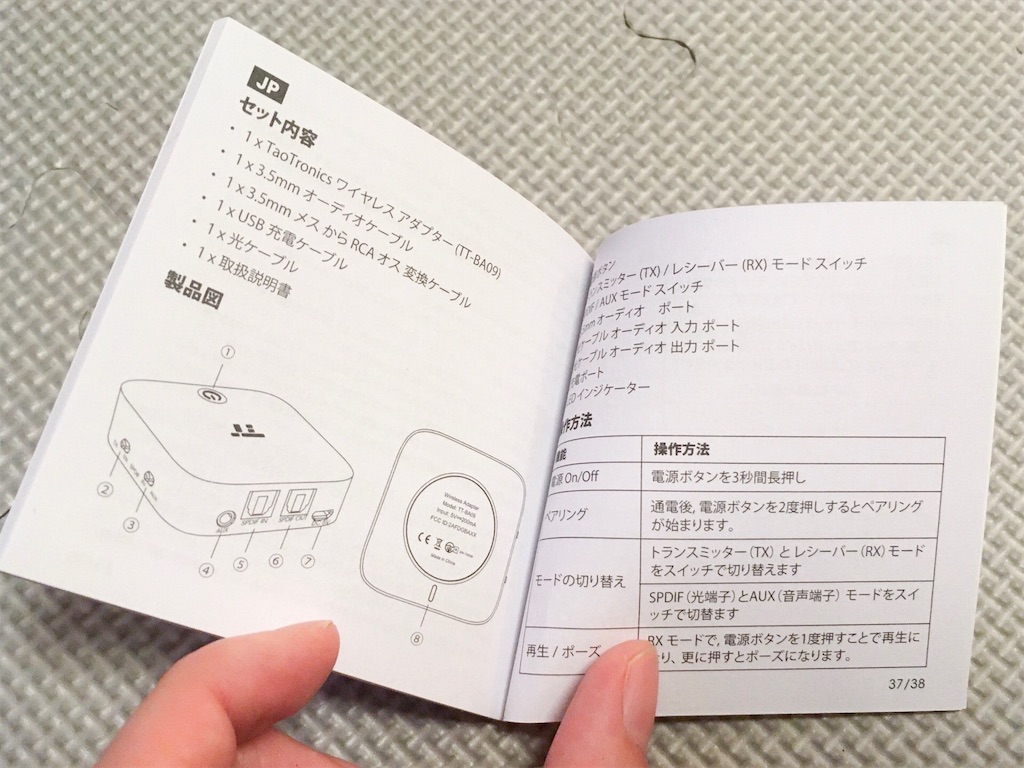 JP
セット内容
• 1 x TaoTronics ワイヤレス アダプター (TT-BA09)
• 1 x 3.5mm オーディオケーブル
• 1 x 3.5mm メス から RCA オス 変換ケーブル
• 1 x USB 充電ケーブル
• 1 x 光ケーブル
• 1 x 取扱説明書
製品図
①
②
③
④
⑤
⑥
⑦
⑧
AUX
SPDIF IN
SPDIF OUT
Wireless Adapter
Model: TT-BA09
Input: 5V⎓200mA
FCC ID:2AFDGBAXX
CE
Made in China
ボタン
ンスミッター (TX) / レシーバー (RX) モード スイッチ
DIF / AUX モード スイッチ
mm オーディオ ポート
ケーブル オーディオ 入力 ポート
ケーブル オーディオ 出力 ポート
電ポート
ED インジケーター
作方法
機能 操作方法
電源 On/Off 電源ボタンを3秒間長押し
ペアリング 通電後, 電源ボタンを2度押しするとペアリング
が始まります。
モードの切り替え トランスミッター (TX) とレシーバー (RX) モード
をスイッチで切り替えます
SPDIF (光端子) とAUX (音声端子) モードをスイ
ッチで切替ます
再生 / ポーズ RX モードで, 電源ボタンを1度押すことで再生に
り、更に押すとポーズになります。
37/38